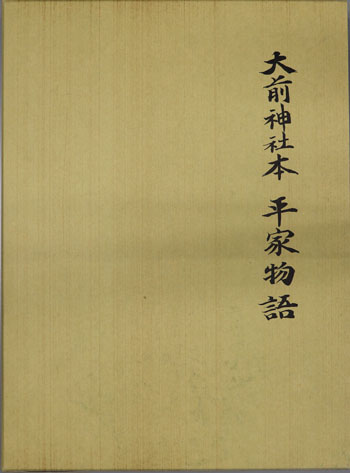 大前神社本 平家物語